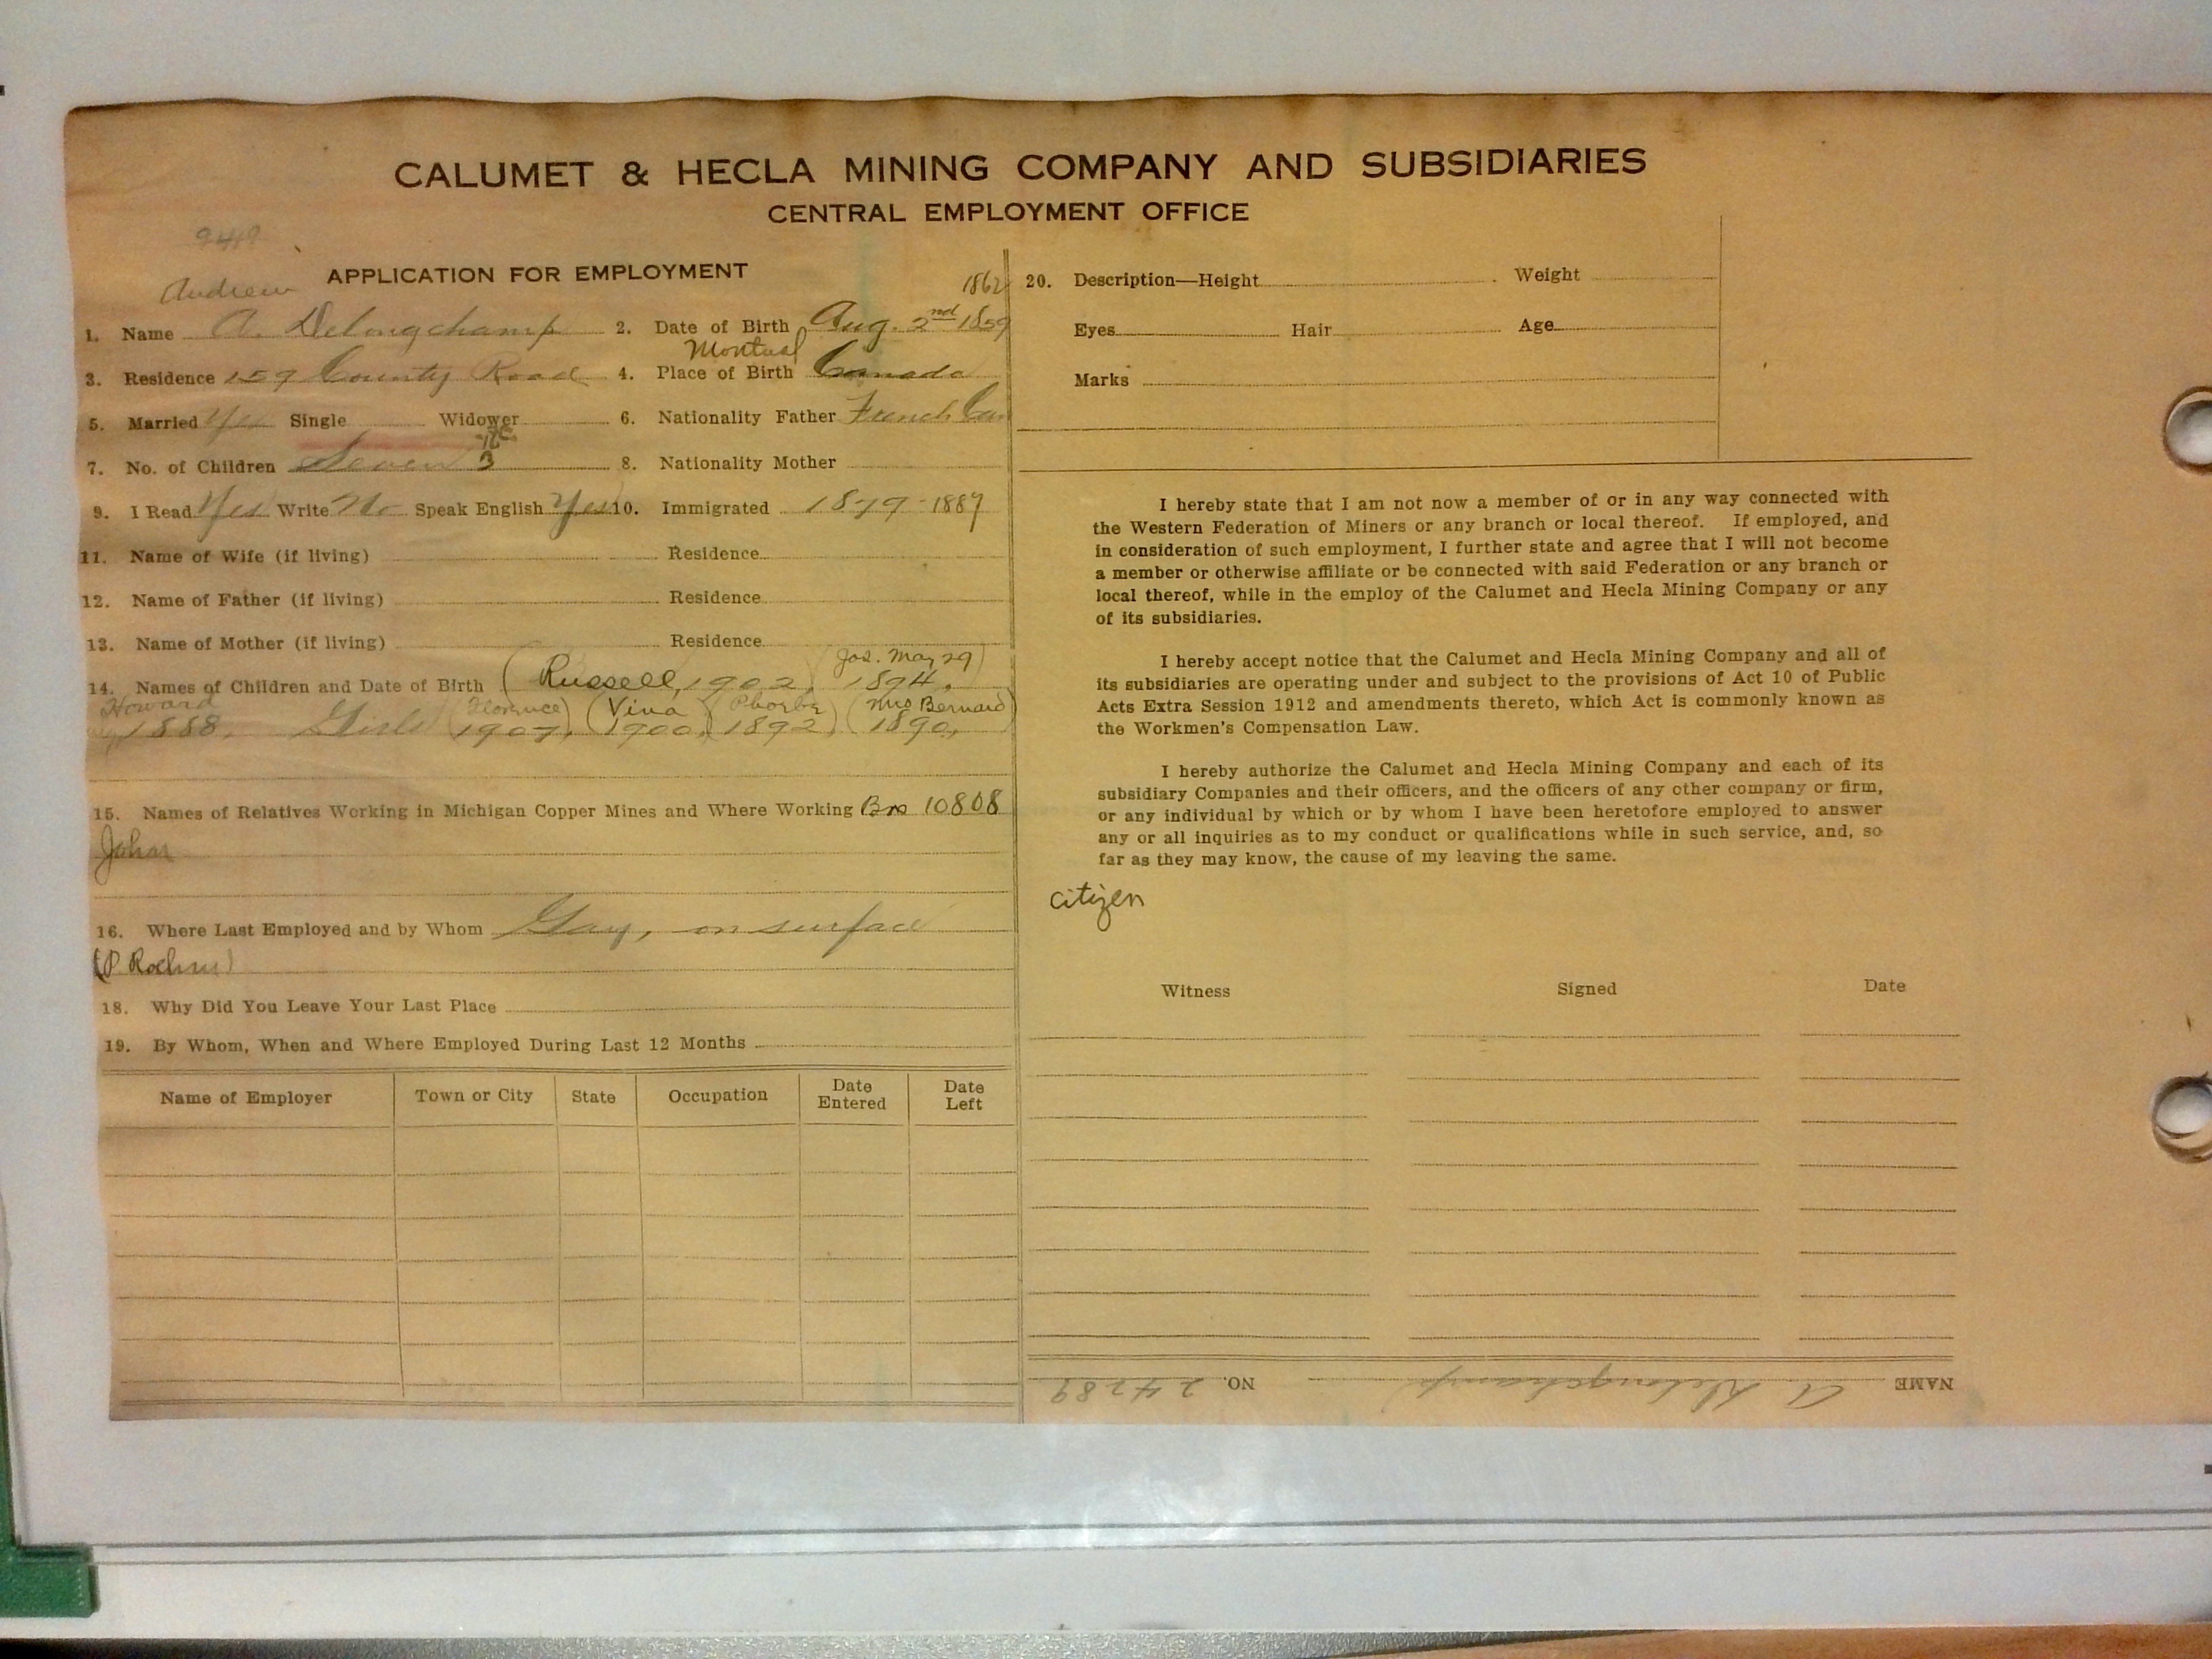 CALUMET & HECLA MINING COMPANY AND SUBSIDIARIES
CENTRAL EMPLOYMENT OFFICE
APPLICATION FOR EMPLOYMENT
Andrew
1862
1. Name A. Delongchamp 2. Date of Birth Aug. 2nd 1859
3. Residence 159 County Road 4. Place of Birth Montreal Canada
5. Married Yes Single Widower 6. Nationality Father French Can
7. No. of Children Seven 3 8. Nationality Mother
9. I Read Yes Write No Speak English Yes 10. Immigrated 1879-1887
11. Name of Wife (if living) Residence
12. Name of Father (if living) Residence
13. Name of Mother (if living) Residence
14. Names of Children and Date of Birth (Russell, 1902, (Jos. May 29) 1894.
Howard 1888, Girls (Florence) 1907, (Viva 1900,) (Phoebe 1892) (Mrs Bernard) 1890,
15. Names of Relatives Working in Michigan Copper Mines and Where Working Bro 10808
John
16. Where Last Employed and by Whom Gay, on surface
(P
18. Why Did You Leave Your Last Place
19. By Whom, When and Where Employed During Last 12 Months
Name of Employer Town or City State Occupation Date Entered Date Left
20. Description—Height Weight
Eyes Hair Age
Marks
I hereby state that I am not now a member of or in any way connected with
the Western Federation of Miners or any branch or local thereof. If employed, and
in consideration of such employment, I further state and agree that I will not become
a member or otherwise affiliate or be connected with said Federation or any branch or
local thereof, while in the employ of the Calumet and Hecla Mining Company or any
of its subsidiaries.
I hereby accept notice that the Calumet and Hecla Mining Company and all of
its subsidiaries are operating under and subject to the provisions of Act 10 of Public
Acts Extra Session 1912 and amendments thereto, which Act is commonly known as
the Workmen's Compensation Law.
I hereby authorize the Calumet and Hecla Mining Company and each of its
subsidiary Companies and their officers, and the officers of any other company or firm,
or any individual by which or by whom I have been heretofore employed to answer
any or all inquiries as to my conduct or qualifications while in such service, and, so
far as they may know, the cause of my leaving the same.
citizen
Witness Signed Date
NAME A Delongchamp NO. 24289